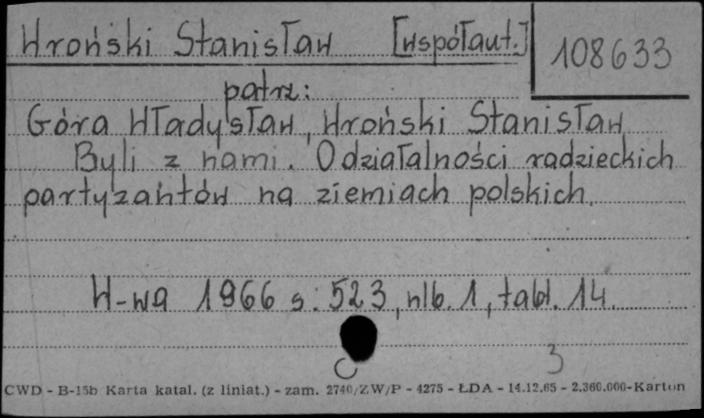 Wroński Stanisław [współaut.] 108633
patrz:
Góra Władysław, Wroński Stanisław
Byli z nami. O działalności radzieckich
partyzantów na ziemiach polskich.
W-wa 1966 s. 523, nlb. 1, tabl. 14.
3
CWD - B-15b Karta katal. (z liniat.) - zam. 2740/ZW/P - 4275 - ŁDA - 14.12.65 - 2.360.000-Karton